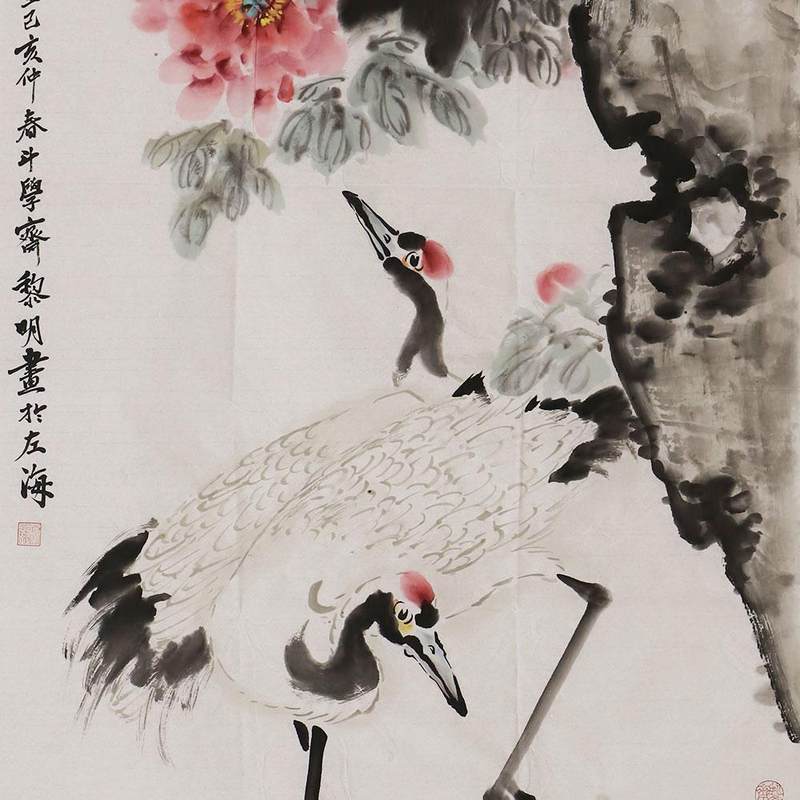 己亥仲春斗學齋黎明畫於左海